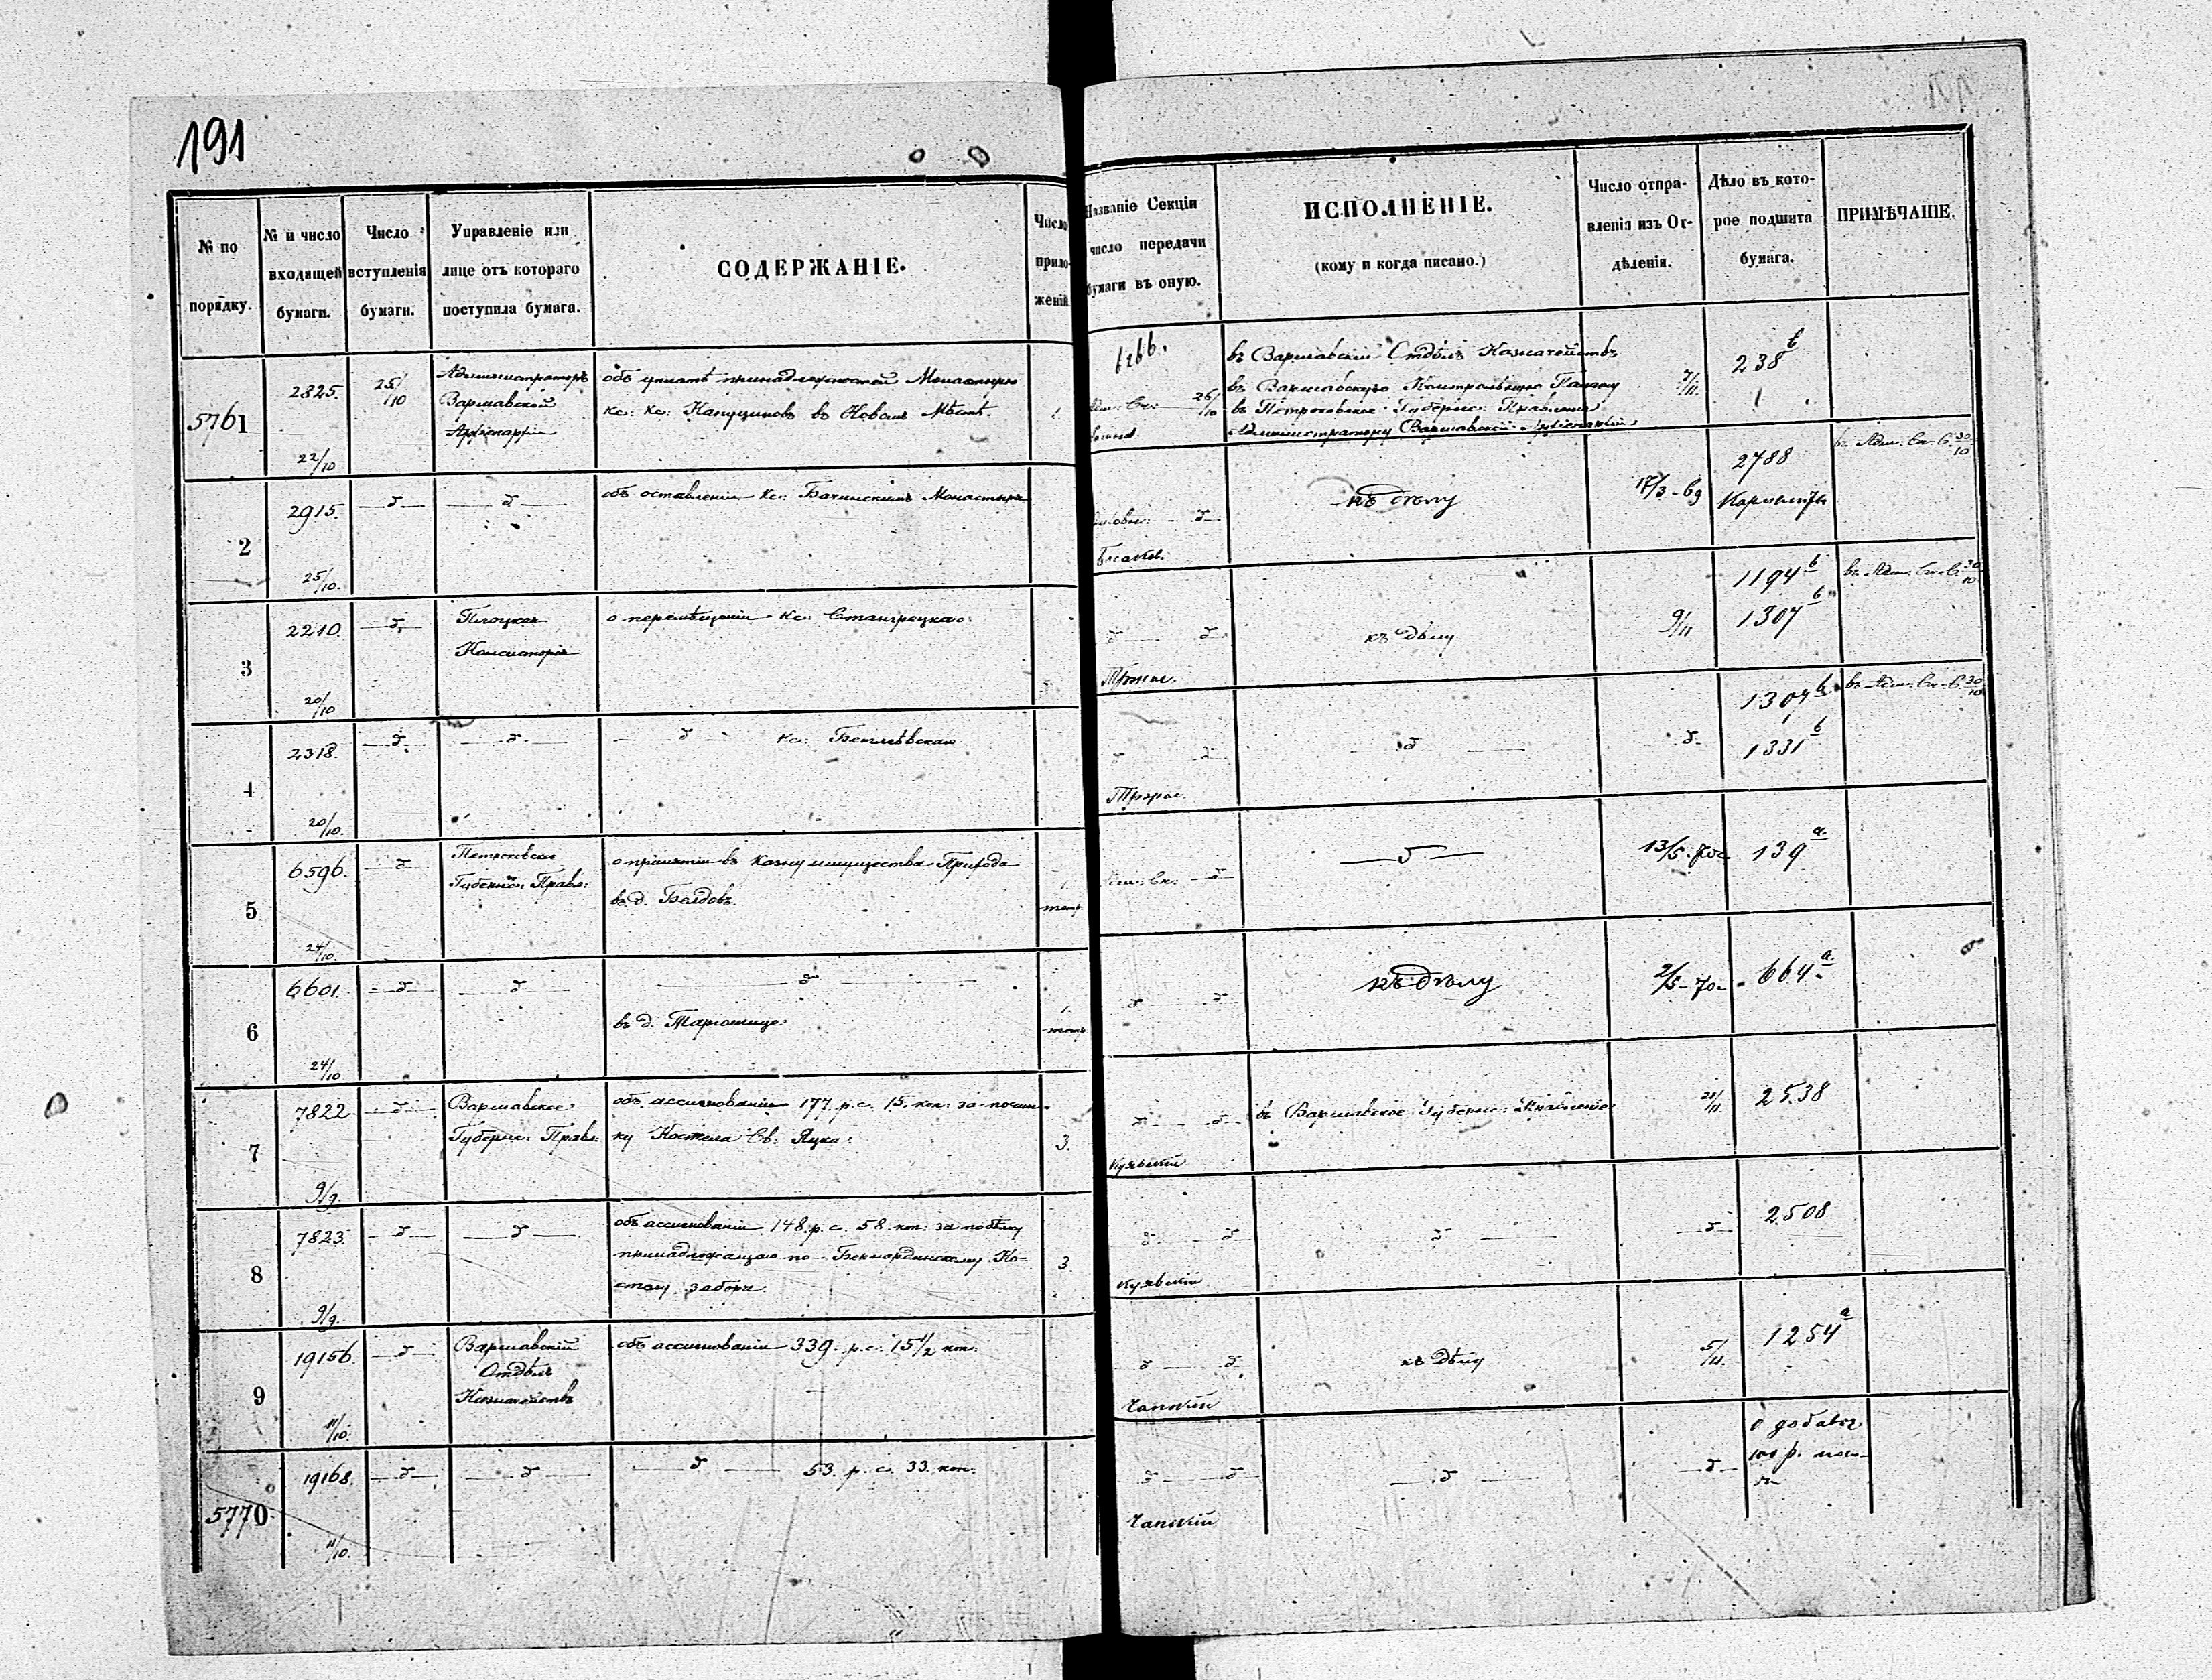 191
№ по порядку.
№ и число входящей бумаги.
Число вступленія бумаги.
Управленіе или лице отъ котораго поступила бумага.
СОДЕРЖАНІЕ.
Число приложеній
Названіе Секціи число передачи бумаги въ оную.
ИСПОЛНЕНІЕ.
(кому и когда писано.)
Число отправленія изъ Отдѣленія.
Дѣло въ которое подшита бумага.
ПРИМѢЧАНІЕ.
5761
2825.
22/10
25/10
Администраторъ
Варшавской
Архіепархіи
объ уплатѣ принадлежностей Монастырю
кс: кс: Капуциновъ въ Новомъ Мѣстѣ.
1.
6266.
26/10
въ Варшавскій Отдѣлъ Казначействъ
въ Варшавскую Контрольную Палату
въ Петроковское Губернс: Правленіе
Администратору Варшавской Архіепархіи
7/11.
238 b
2
2915.
25/10.
об оставленіи кс: Монастыря
къ дѣлу
17/3 - 69
2788
Кармелиты
въ Адм: Ск: 30/10
3
2210.
20/10
Плоцкая
Консисторія
о перемѣщеніи кс: Стангрецкаго
къ дѣлу
9/11
1194 b
1307 b
въ Адм: Ск: 30/10
4
2318.
20/10.
кс:
1307 b
1331 b
въ Адм: Ск: 30/10
5
6596.
24/10.
Петроковское
Губернс: Правл:
о принятіи въ казну имущества Прихода
въ д. Белдовъ
1.
томъ
Адм: Ск:
13/5 - 70
139 a.
6
6601.
24/10
въ д.
1.
томъ
къ дѣлу
2/5 - 70
664 a
7
7822
9/9.
Варшавское
Губернс: Правл:
объ ассигнованіи 177. р. с. 15. коп: за почин-
ку Костела Св: Яцка.
3.
Куявскій
въ Варшавское Губернс: Правленіе
21/11.
2538
8
7823.
9/9.
объ ассигнованіи 148. р. с. 58. коп: за побѣлку
принадлежащаго по-Бернардинскому Ко-
стелу забора.
3.
Куявскій
2508
9
19156.
11/10.
Варшавскій
Отдѣлъ
Казначействъ
объ ассигнованіи 339. р. с. 15 1/2 коп:
Чапскій
къ дѣлу
5/11.
1254 a
5770
19168.
11/10.
53. р. с. 33. коп:
Чапскій
о добавоч.